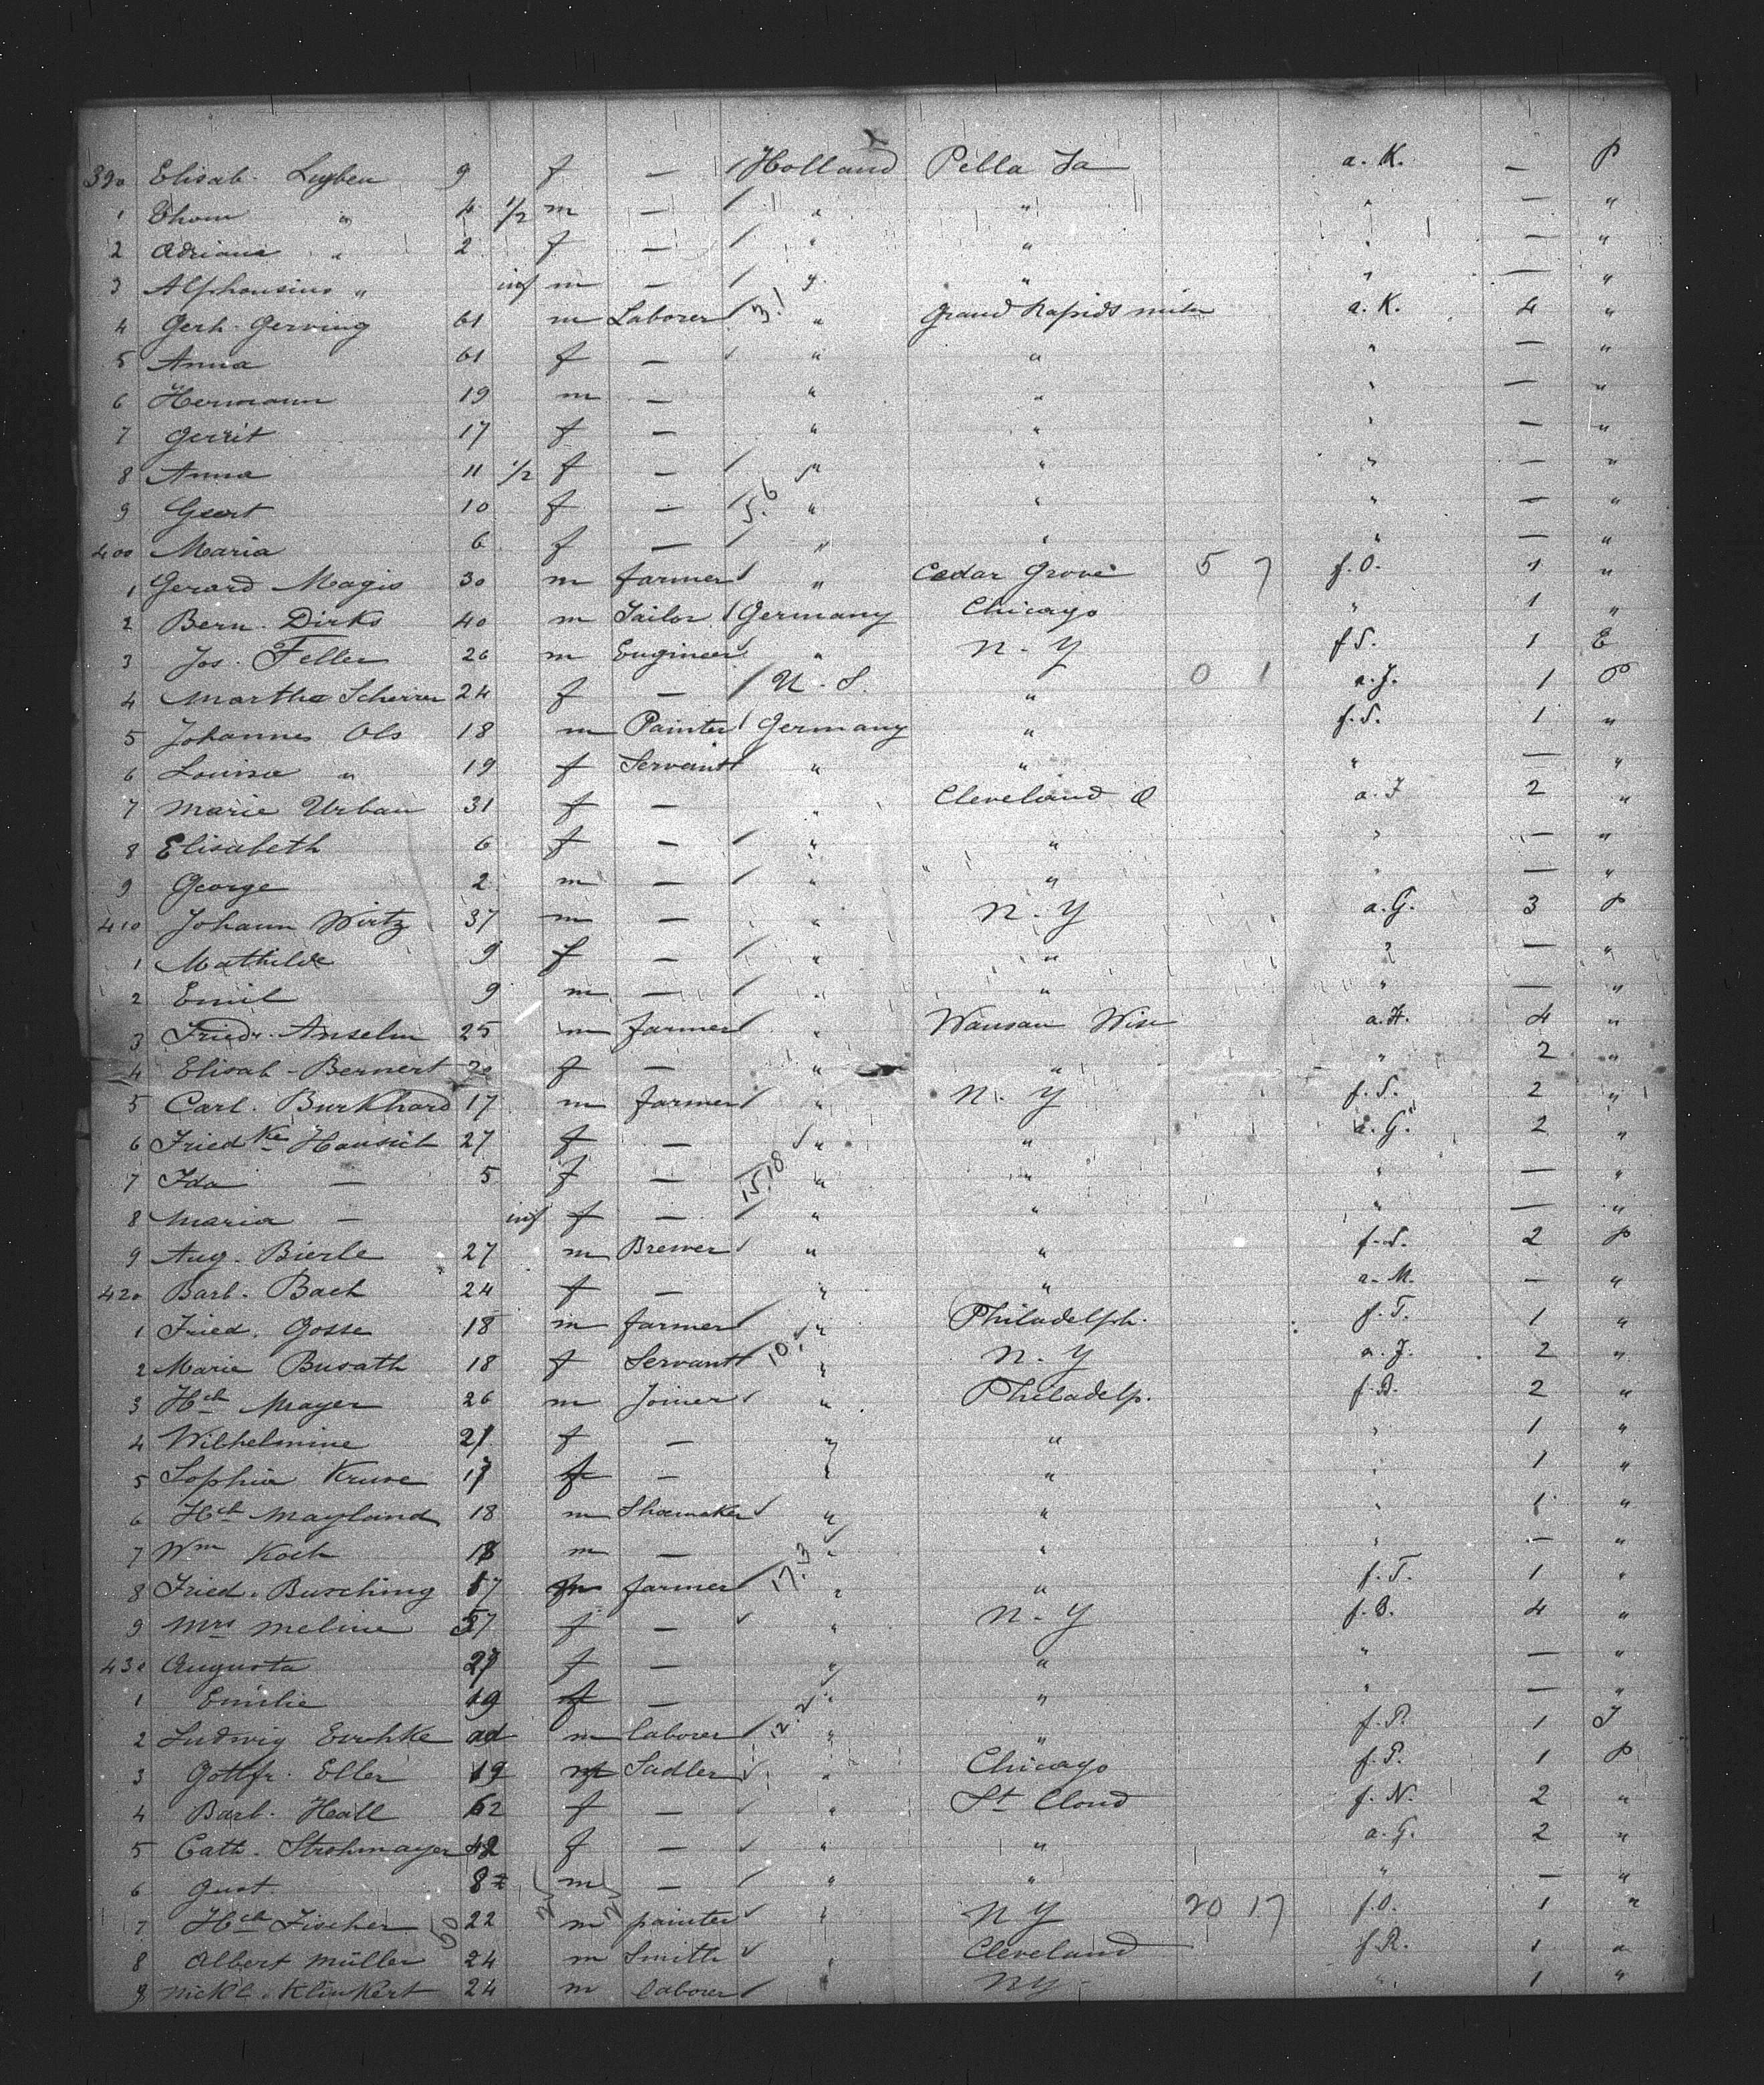 390 Elisab. Luyben 9 f — / Holland Pella Ia a. K. — P
1 Thom " 4 1/2 m — / " " " — "
2 Adriana " 2 f — / " " " — "
3 Alphonsius " inf m — / " " " — "
4 Gerh. Gerving 61 m Laborer / 3.1 " Grand Rapids mich a. K. 4 "
5 Anna 61 f — " " " — "
6 Hermann 19 m — " " " — "
7 Gerrit 17 f — " " " — "
8 Anna 11 1/2 f — / " " " — "
9 Geert 10 f — / 5.6 " " " — "
400 Maria 6 f — / " " " — "
1 Gerard Magis 30 m farmer / " Cedar Grove 5 7 f. O. 1 "
2 Bern. Dirks 40 m Tailor / Germany Chicago " 1 "
3 Jos. Feller 26 m Engineer " N. Y f S. 1 E
4 Martha Scherrer 24 f — / U. S. " 0 1 a. J. 1 P
5 Johannes Ols 18 m Painter / Germany " f. S. 1 "
6 Louise " 19 f Servant " " " — "
7 Marie Urban 31 f — " Cleveland O a. J 2 "
8 Elisabeth 6 f — / " " " — "
9 George 2 m — / " " " — "
410 Johann Wirtz 37 m — " N. Y a. G. 3 P
1 Mathilde 9 f — / " " " — "
2 Emil 9 m — / " " " — "
3 Friedr. Anselm 25 m farmer / " Wausau Wisc a. H. 4 "
4 Elisab. Bernert 20 f — " " " 2 "
5 Carl. Burkhard 17 m farmer / " N. Y f. S. 2 "
6 Fried ke 27 f — " " a. G. 2 "
7 Ida — 5 f — 15.18 " " " — "
8 Maria — inf f — / " " " — "
9 Aug. Bierle 27 m Brewer / " " f. S. 2 P
420 Barb. Bach 24 f — " " a. M. — "
1 Fried. Gosse 18 m farmer / " Philadelph. f. T. 1 "
2 Marie Busath 18 f Servant 10. " N. Y a. J. 2 "
3 Hch Mayer 26 m Joiner / " Philadelp. f. B. 2 "
4 Wilhelmine 21 f — " " " 1 "
5 Sophia Kruse 17 f — " " " 1 "
6 Hch Mayland 18 m Shoemaker " " " 1 "
7 Wm Koch 18 m — " " " — "
8 Fried. Busching 17 m farmer / 17.3 " " f. T. 1 "
9 Mrs Meline 57 f — " N. Y f. B. 4 "
430 Augusta 27 f — " " " — "
1 Emilie 19 f — " " " — "
2 Ludwig ad m laborer / 12.2 " " f. P. 1 I
3 Gottfr. Eller 19 m Sadler " Chicago f. P. 1 P
4 Barb. Hall 62 f — " St Cloud f. N. 2 "
5 Cath. Strohmayer 42 f — " " a. G. 2 "
6 Gust. 8 m — / " " " — "
7 Hch Fischer 50 22 25 m 25 painter " N Y 20 17 f. O. 1 "
8 Albert Müller 24 m Smith " Cleveland f. R. 1 "
9 Nickl. Klinkert 24 m laborer / " NY " 1 "